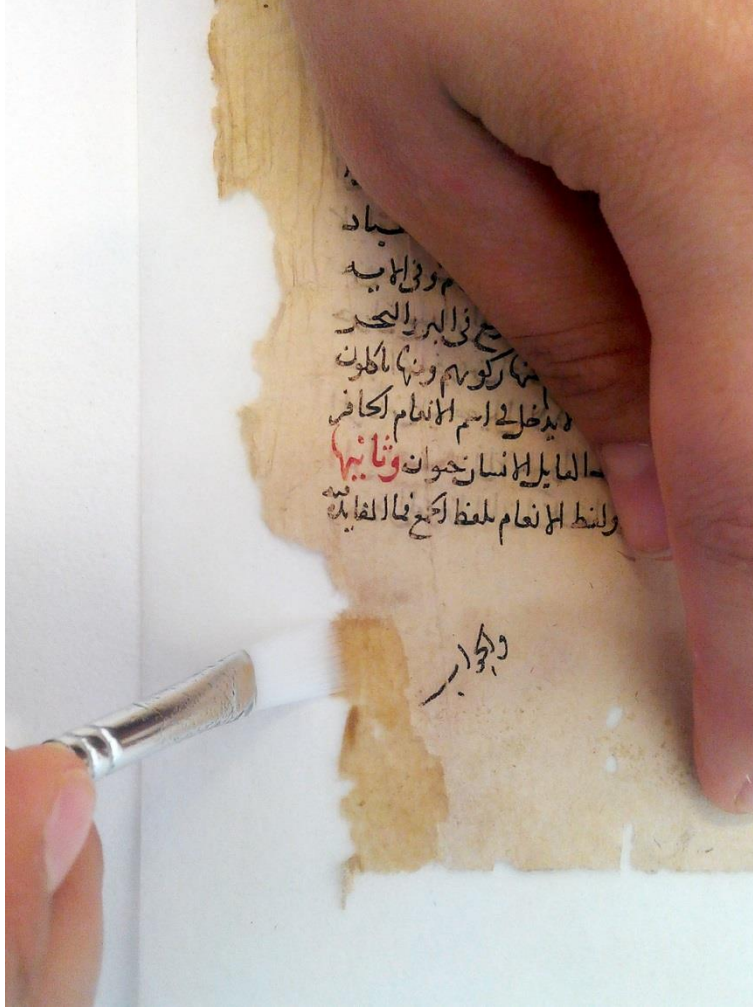 وفى الايه
فى البر والبحر
منها ركوبهم ومنها ياكلون
لا يدخل فى اسم الانعام الحافر
القايل الانسان حيوان وثانيها
ولفظ الانعام بلفظ الجمع فما الفايده
والجواب